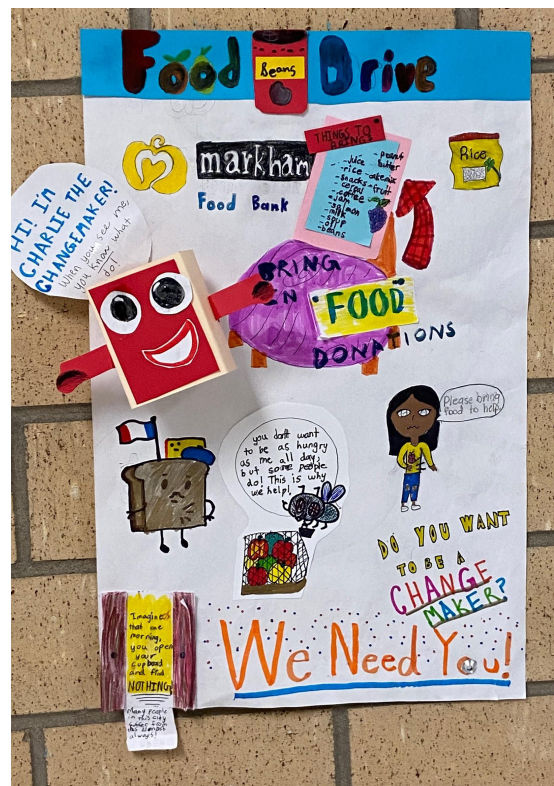 Food Drive
Beans
markham
Food Bank
THINGS TO
BRING
- peanut
butter
- juice
- rice
- snacks
- fruit
- cereal
- coffee
- jam
- salmon
- milk
- soup
- beans
Rice
HI! IM
CHARLIE THE
CHANGEMAKER!
When you see me,
you know what
do!
BRING
IN
FOOD
DONATIONS
Please bring
food to help
you don't want
to be as hungry
as me all day,
but some people
do! This is why
we help!
DO YOU WANT
TO BE A
CHANGE
MAKER?
Imagine
that one
morning,
you open
your
cupboard
and find
NOTHING
Many people
in this city
suffer from
this almost
always!
We Need You!